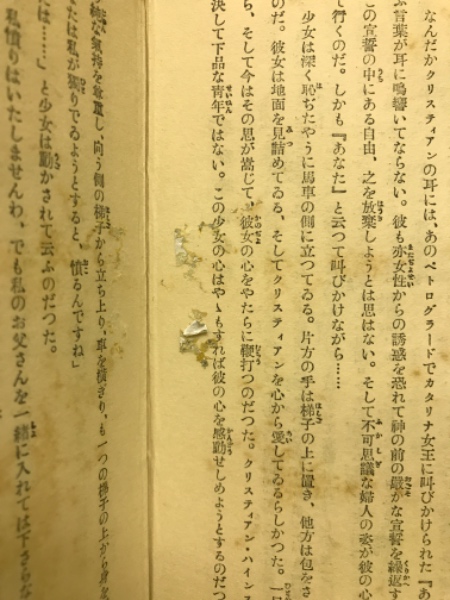 なんだかクリスティアンの耳には、あのペトログラードでカタリナ女王に叫びかけられた『あ
ぶ言葉が耳に鳴響いてならない。彼も亦女性からの誘惑を恐れて神の前の嚴かな宣誓を繰返す
この宣誓の中にある自由、之を放棄しようとは思はない。そして不可思議な婦人の姿が彼の心
て行くのだ。しかも『あなた』と云つて叫びかけながら……
少女は深く恥ぢたやうに馬車の側に立つてゐる。片方の手は梯子の上に置き、他方は包をさ
のだ。彼女は地面を見詰めてゐる、そしてクリスティアンを心から愛してゐるらしかつた。
ら、そして今はその思が嵩じて、彼女の心をやたらに鞭打つのだつた。クリスティアン・ハインス
決して下品な靑年ではない。この少女の心はやゝもすれば彼の心を感動せしめようとするのだつ
な氣持を放還し、向う側の梯子から立ち上り、車を橫ぎり、も一つの梯子の上から身を
たは私が獨りでゐようとすると、憤るんですね」
たは……」と少女は動かされて云ふのだつた。
私憤りはいたしませんわ、でも私のお父さんを一緖に入れては下さらな